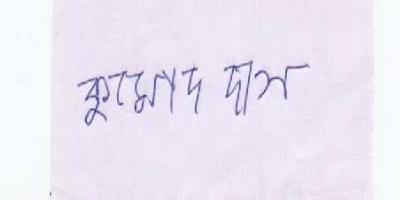 কুমোদ দাস